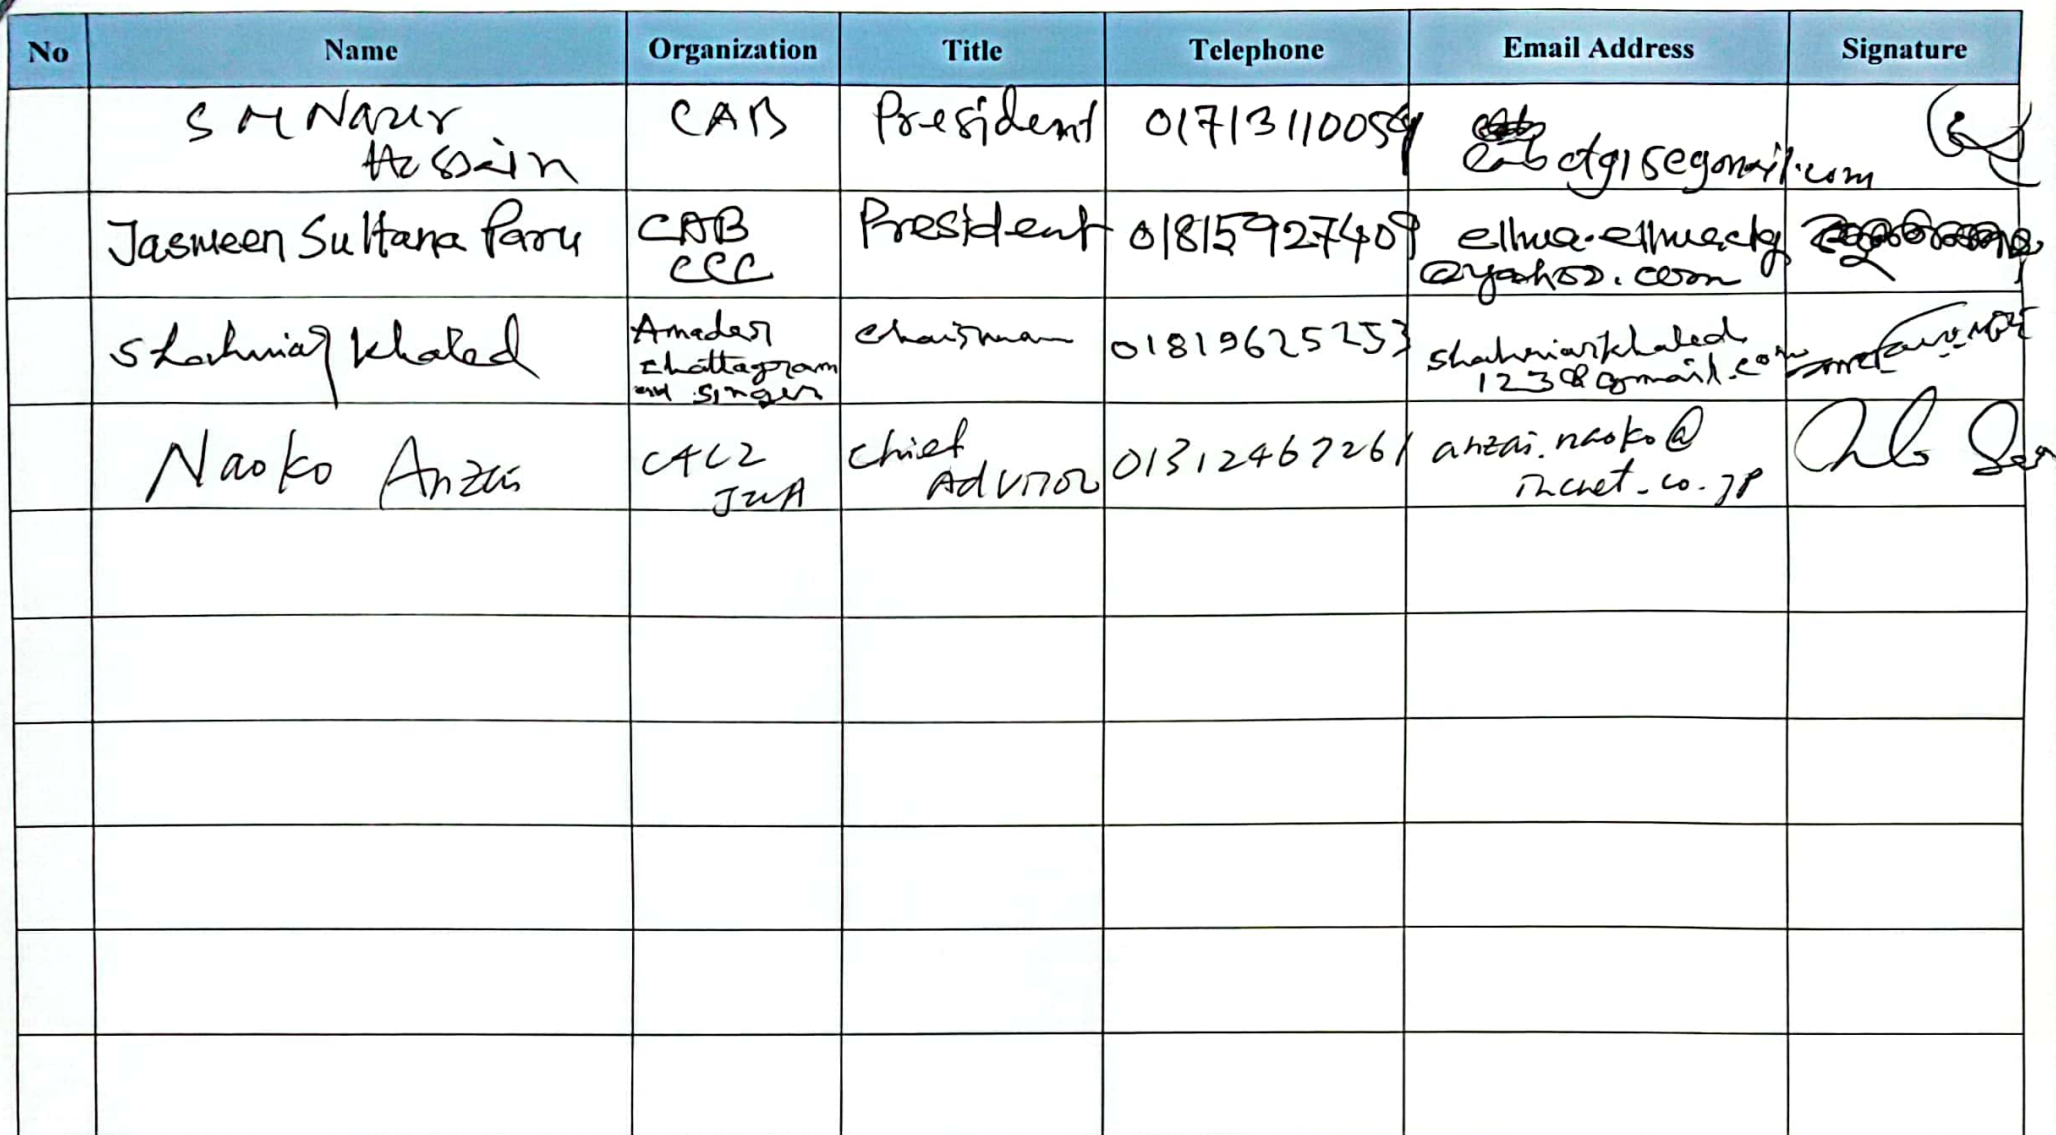 No Name Organization Title Telephone Email Address Signature
S M Nazer Hossain CAB President 01713110054 cabctg15@gmail.com
Jasmeen Sultana Paru CAB CCC President 01815927409 @yahoo.com
Shahriar Khaled Amader Chattagram and Singer Chairman 01819625253 shahriarkhaled 123@gmail.com
Naoko Anzai C4C2 JICA Chief Advisor 01312467261 anzai.naoko@ icnet.co.jp